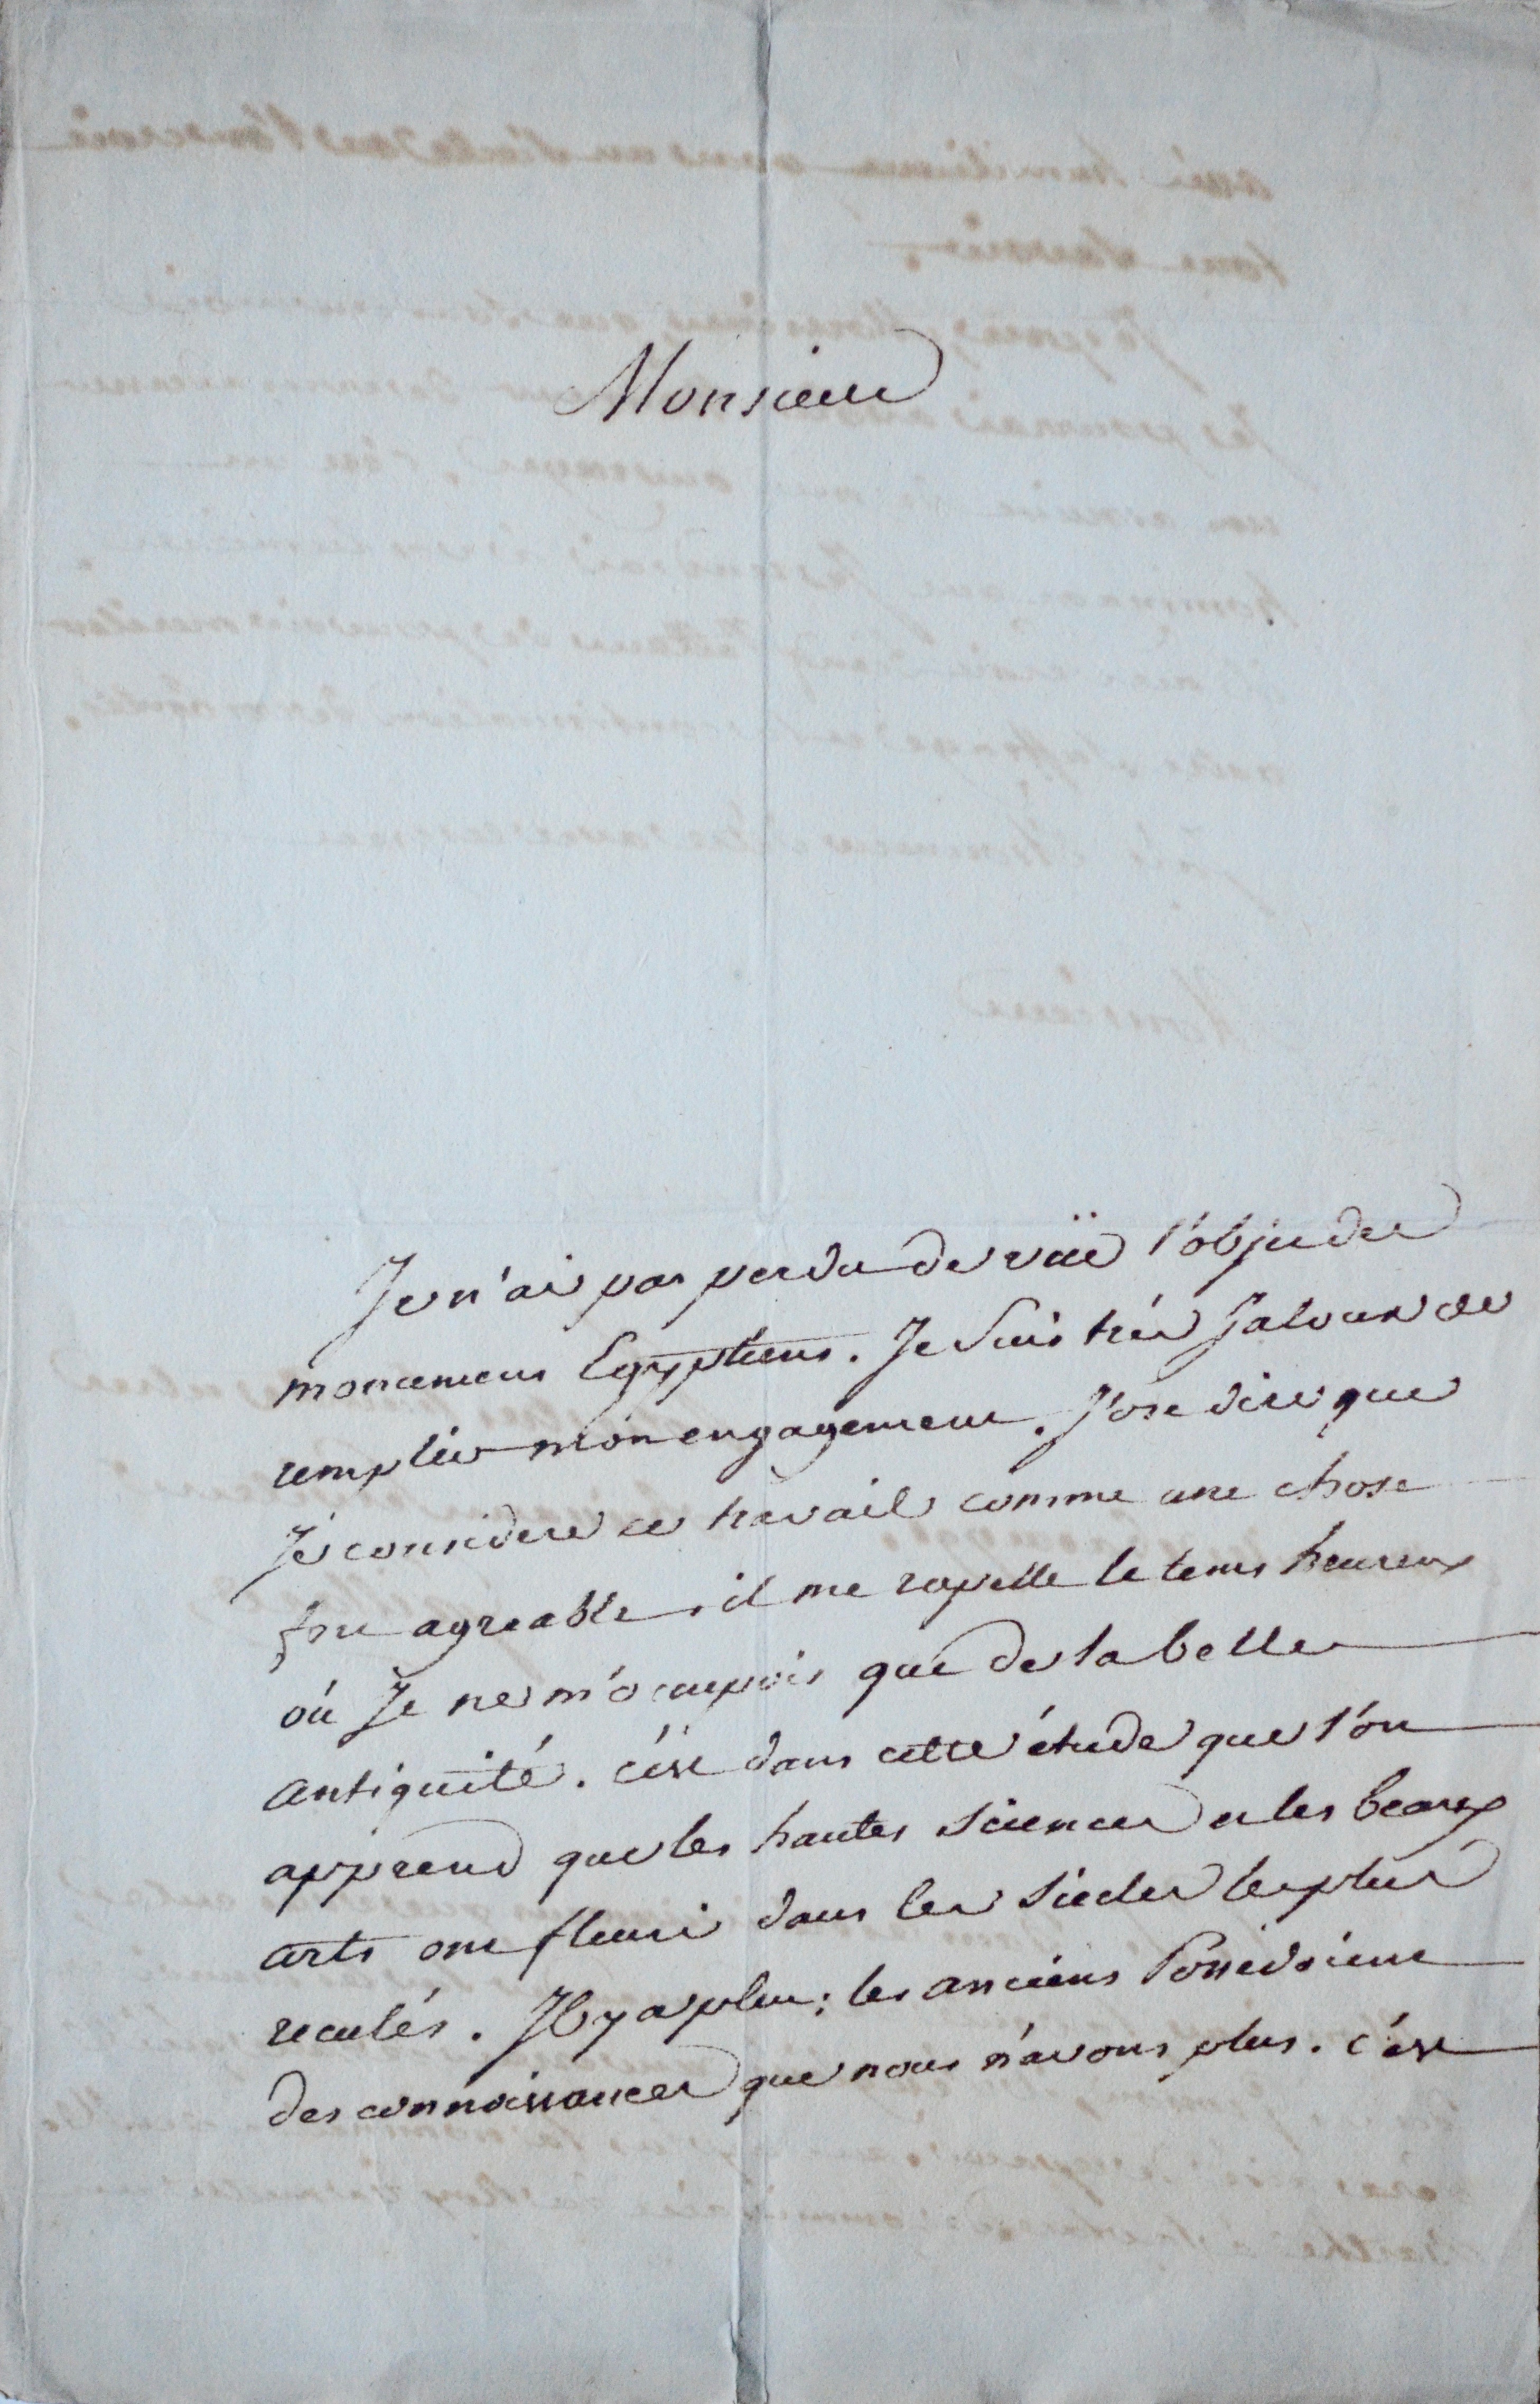 Monsieur
Je n'ai pas perdu de vüe l'objet des
monumens Egyptiens. Je Suis très Jaloux de
remplir mon engagement. J'ose dire que
Je considere ce travail comme une chose
fort agreable. il me rapelle le tems heureux
où Je ne m'ocupois que de la belle
antiquité. c'est dans cette étude que l'on
apprend que les hautes sciences et les beaux
arts ont fleuri dans les siecles les plus
reculés. Il y a plus: les anciens Possedoient
des connoissances que nous n'avons plus. c'est